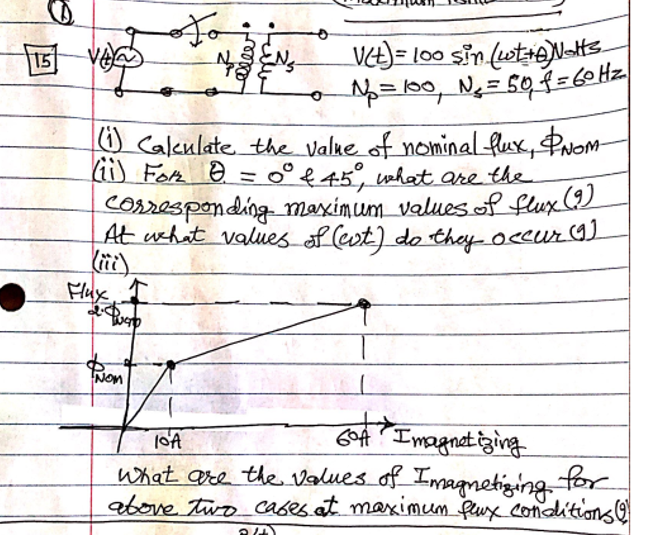 ①
15 V(t) Np Ns V(t) = 100 sin (ωt+θ) Volts
Np = 100, Ns = 50, f = 60 Hz
(i) Calculate the value of nominal flux, ΦNOM
(ii) For θ = 0° & 45°, what are the
corresponding maximum values of flux (?)
At what values of (ωt) do they occur (?)
(iii)
Flux
2·ΦNOM
ΦNOM
10A 60A Imagnetizing
What are the values of Imagnetizing for
above two cases at maximum flux conditions (?)